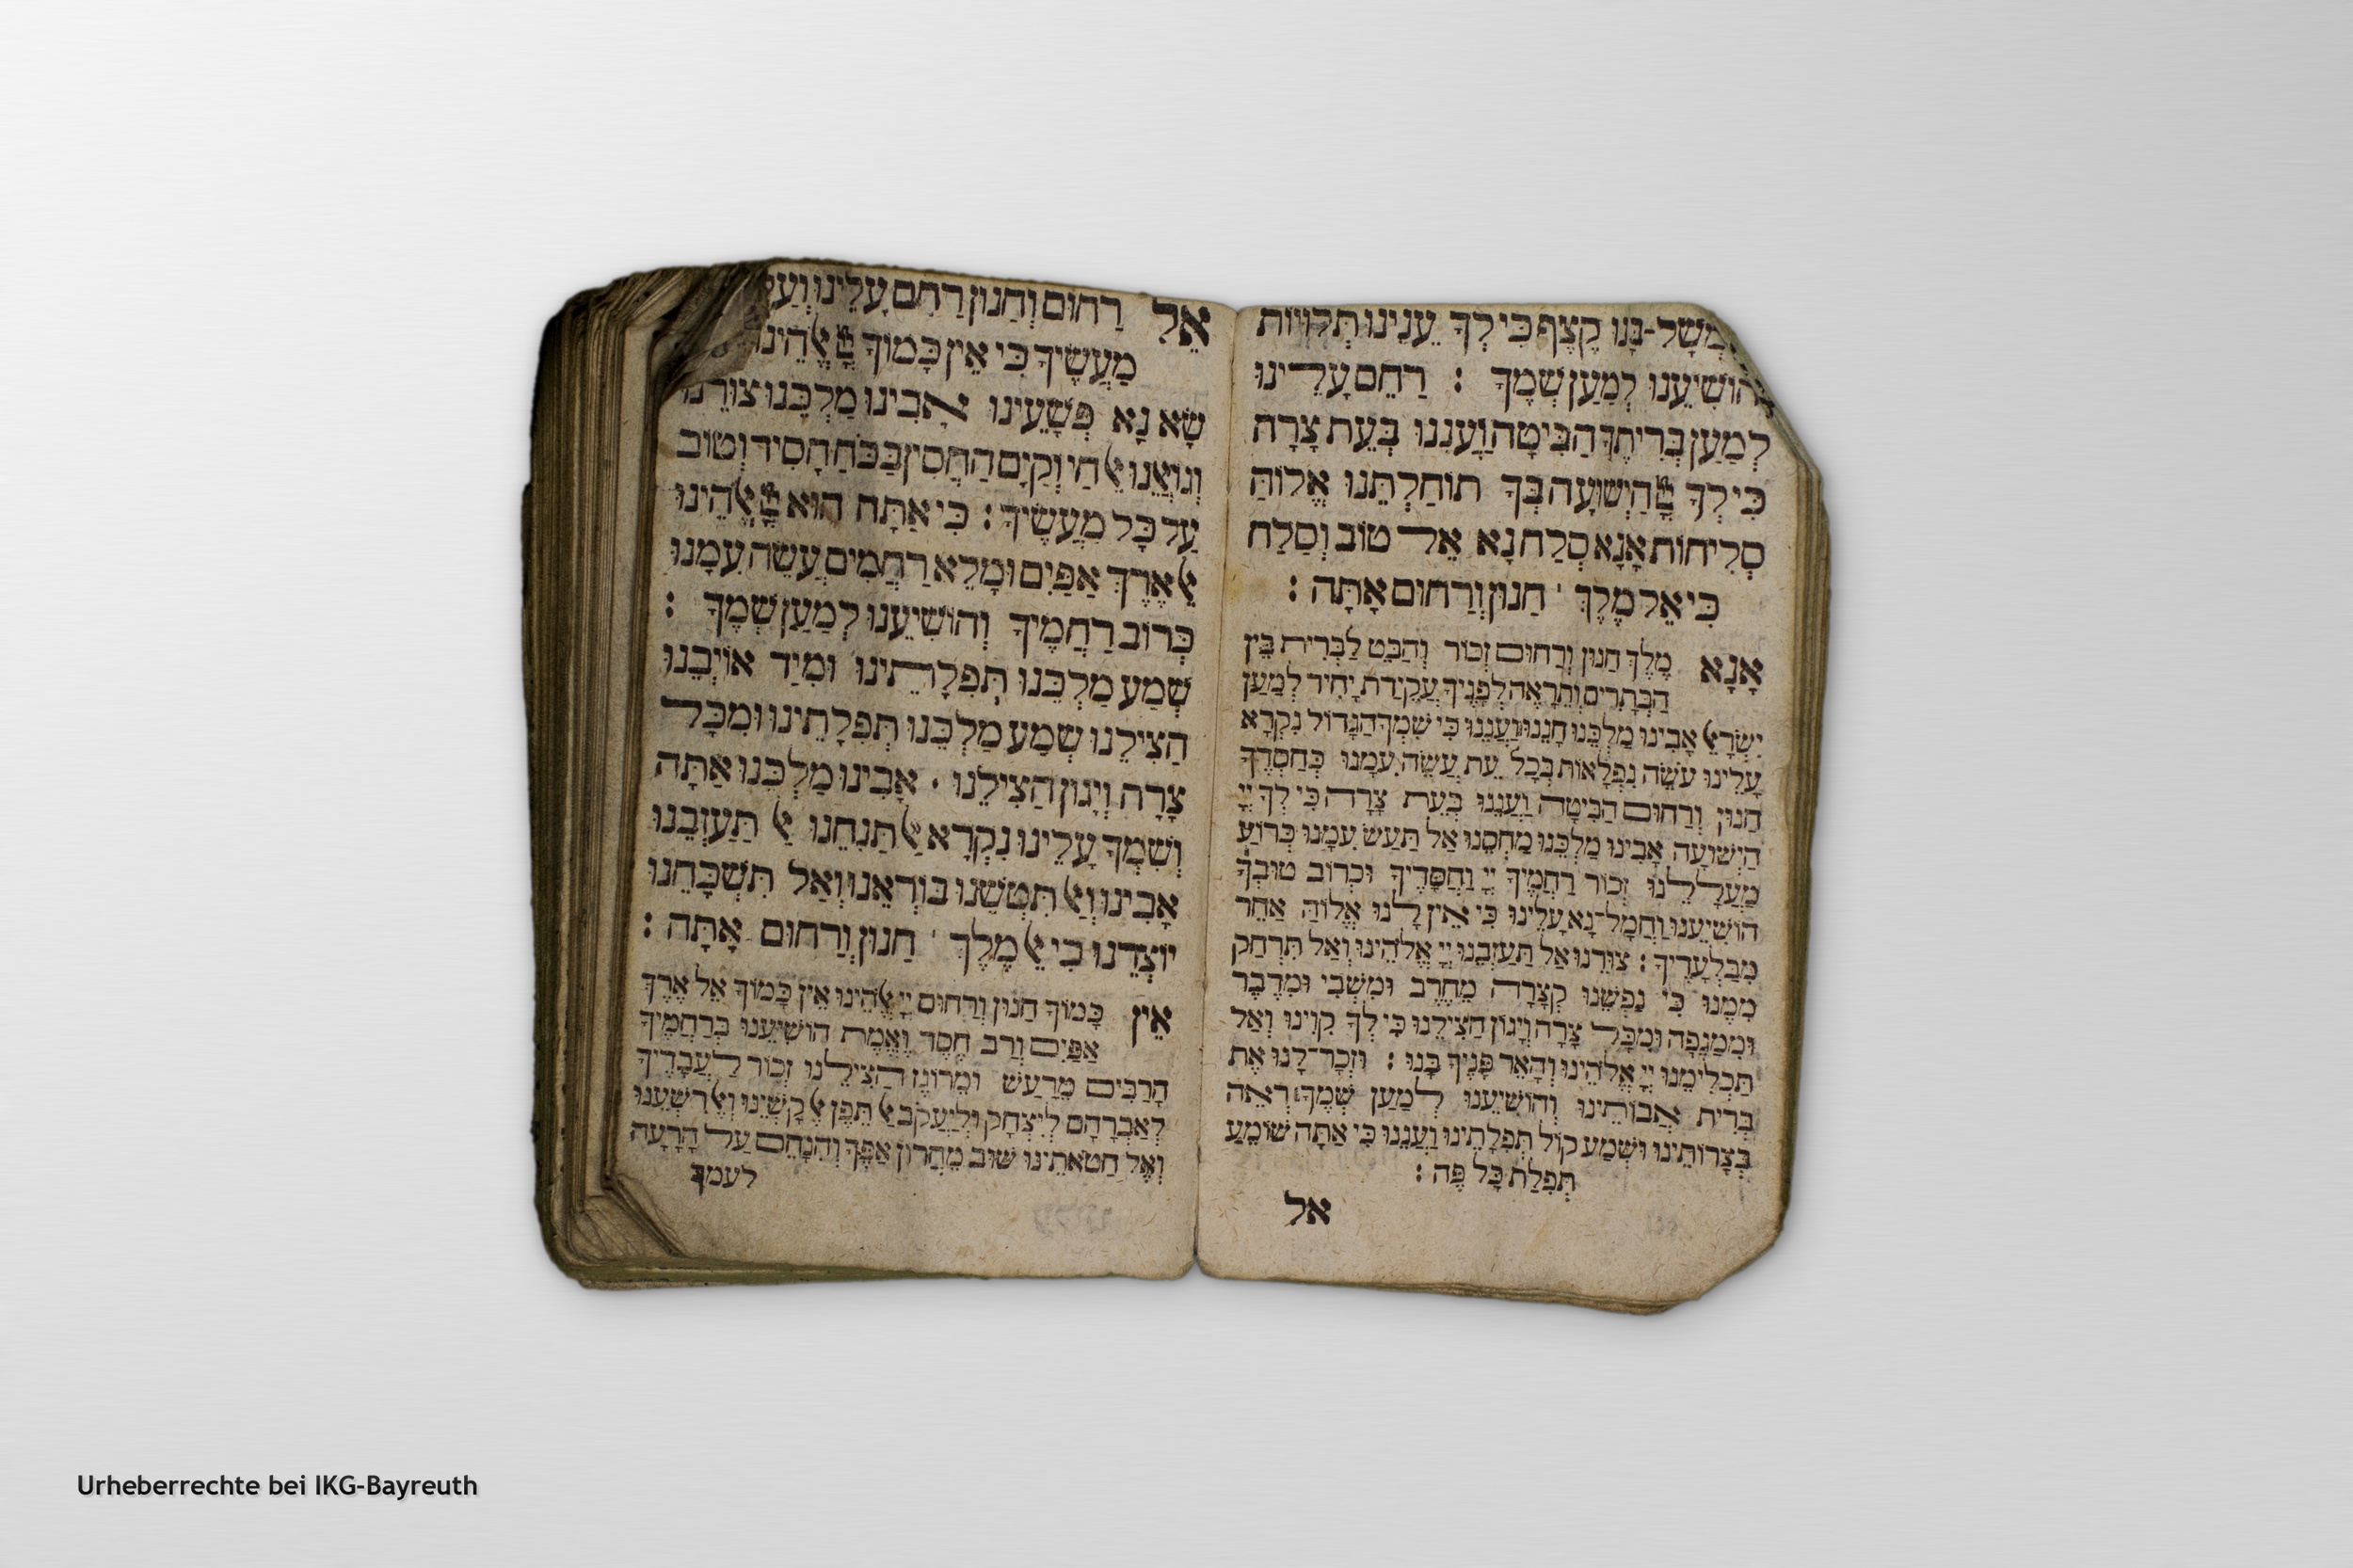 יִמְשָׁל-בָּנוּ קֶצֶף כִּי לְךָ עֵנֵינוּ תְּלוּיוֹת
וְהוֹשִׁיעֵנוּ לְמַעַן שְׁמֶךָ : רַחֵם עָלֵינוּ
לְמַעַן בְּרִיתֶךָ הַבִּיטָה וַעֲנֵנוּ בְּעֵת צָרָה
כִּי לְךָ יְיָ הַיְשׁוּעָה בְּךָ תוֹחַלְתֵּנוּ אֱלוֹהַּ
סְלִיחוֹת אָנָא סְלַח נָא אֵל טוֹב וְסַלָּח
כִּי אֵל מֶלֶךְ ' חַנּוּן וְרַחוּם אָתָּה :
אָנָא מֶלֶךְ חַנּוּן וְרַחוּם זְכוֹר וְהַבֵּט לַבְּרִית בֵּין
הַבְּתָרִים וְתֵרָאֶה לְפָנֶיךָ עֲקֵידַת יָחִיד לְמַעַן
יִשְׂרָאֵל אָבִינוּ מַלְכֵּנוּ חָנֵּנוּ וַעֲנֵנוּ כִּי שִׁמְךָ הַגָּדוֹל נִקְרָא
עָלֵינוּ עֹשֵׂה נִפְלָאוֹת בְּכָל עֵת עֲשֵׂה עִמָּנוּ כְּחַסְדֶּךָ
חַנּוּן וְרַחוּם הַבִּיטָה וַעֲנֵנוּ בְּעֵת צָרָה כִּי לְךָ יְיָ
הַיְשׁוּעָה אָבִינוּ מַלְכֵּנוּ מַחְסֵנוּ אַל תַּעַשׂ עִמָּנוּ כְּרוֹעַ
מַעֲלָלֵינוּ זְכוֹר רַחֲמֶיךָ יְיָ וַחֲסָדֶיךָ וּכְרוֹב טוּבְךָ
הוֹשִׁיעֵנוּ וַחֲמָל־נָא עָלֵינוּ כִּי אֵין לָנוּ אֱלוֹהַּ אַחֵר
מִבַּלְעָדֶיךָ : צוּרֵנוּ אַל תַּעַזְבֵנוּ יְיָ אֱלֹהֵינוּ וְאַל תִּרְחַק
מִמֶּנּוּ כִּי נַפְשֵׁנוּ קְצָרָה מֵחֶרֶב וּמִשְּׁבִי וּמִדֶּבֶר
וּמִמַּגֵּפָה וּמִכָּל צָרָה וְיָגוֹן הַצִּילֵנוּ כִּי לְךָ קִוִּינוּ וְאַל
תַּכְלִימֵנוּ יְיָ אֱלֹהֵינוּ וְהָאֵר פָּנֶיךָ בָּנוּ : וּזְכָר־לָנוּ אֶת
בְּרִית אֲבוֹתֵינוּ וְהוֹשִׁיעֵנוּ לְמַעַן שְׁמֶךָ רְאֵה
בְּצָרוֹתֵינוּ וּשְׁמַע קוֹל תְּפִלָּתֵינוּ וַעֲנֵנוּ כִּי אַתָּה שׁוֹמֵעַ
תְּפִלַּת כָּל פֶּה :
אל
אֵל רַחוּם וְחַנּוּן רַחֵם עָלֵינוּ וְעַל
מַעֲשֶׂיךָ כִּי אֵין כָּמוֹךָ יְיָ אֱלֹהֵינוּ
שָׂא נָא פְּשָׁעֵינוּ אָבִינוּ מַלְכֵּנוּ צוּרֵנוּ
וְגוֹאֲלֵנוּ אֵל חַי וְקַיָּם הַחֲסִין בַּכֹּחַ חָסִיד וְטוֹב
עַל כָּל מַעֲשֶׂיךָ : כִּי אַתָּה הוּא יְיָ אֱלֹהֵינוּ
אֵל אֶרֶךְ אַפַּיִם וּמָלֵא רַחֲמִים עֲשֵׂה עִמָּנוּ
כְּרוֹב רַחֲמֶיךָ וְהוֹשִׁיעֵנוּ לְמַעַן שְׁמֶךָ :
שְׁמַע מַלְכֵּנוּ תְּפִלָּתֵינוּ וּמִיַּד אוֹיְבֵנוּ
הַצִּילֵנוּ שְׁמַע מַלְכֵּנוּ תְּפִלָּתֵינוּ וּמִכָּל
צָרָה וְיָגוֹן הַצִּילֵנוּ ׳ אָבִינוּ מַלְכֵּנוּ אַתָּה
וְשִׁמְךָ עָלֵינוּ נִקְרָא אַל תַּנִּחֵנוּ אַל תַּעַזְבֵנוּ
אָבִינוּ וְאַל תִּטְּשֵׁנוּ בּוֹרְאֵנוּ וְאַל תִּשְׁכָּחֵנוּ
יוֹצְרֵנוּ כִּי אֵל מֶלֶךְ ' חַנּוּן וְרַחוּם אָתָּה :
אֵין כָּמוֹךָ חַנּוּן וְרַחוּם יְיָ אֱלֹהֵינוּ אֵין כָּמוֹךָ אֵל אֶרֶךְ
אַפַּיִם וְרַב חֶסֶד וֶאֱמֶת הוֹשִׁיעֵנוּ בְּרַחֲמֶיךָ
הָרַבִּים מֵרַעַשׁ וּמֵרוֹגֶז הַצִּילֵנוּ זְכוֹר לַעֲבָדֶיךָ
לְאַבְרָהָם לְיִצְחָק וּלְיַעֲקֹב אַל תֵּפֶן אֶל קָשְׁיֵנוּ וְאֶל רִשְׁעֵנוּ
וְאֶל חַטֹּאתֵינוּ שׁוּב מֵחֲרוֹן אַפֶּךָ וְהִנָּחֵם עַל הָרָעָה
לעמך
Urheberrechte bei IKG-Bayreuth